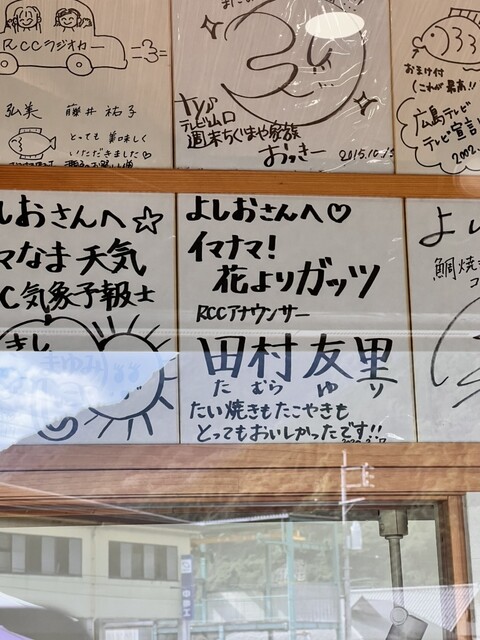 RCCラジオカー
弘美 藤井 祐子
とっても美味しく
いただきました♡
tys
テレビ山口
週末ちぐまや家族
おっきー
2015.10.1
おまけ付
(これが最高!!
広島テレビ
テレビ宣言!
2002.
しおさんへ☆
マなま天気
C気象予報士
よしおさんへ♡
イマナマ!
花よりガッツ
RCCアナウンサー
田村友里
たむらゆり
たい焼きもたこやきも
とってもおいしかったです!!
よし
鯛焼き
コ